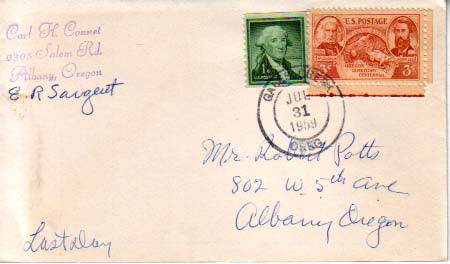 Carl H. Connet
2305 Salem Rd.
Albany, Oregon
E. R. Sargent
U.S. POSTAGE
3¢ 3¢
OREGON
TERRITORY
CENTENNIAL
JUL
31
1959
OREG.
Mr. Robert Potts
802 W. 5th ave
Albany Oregon
Last Day